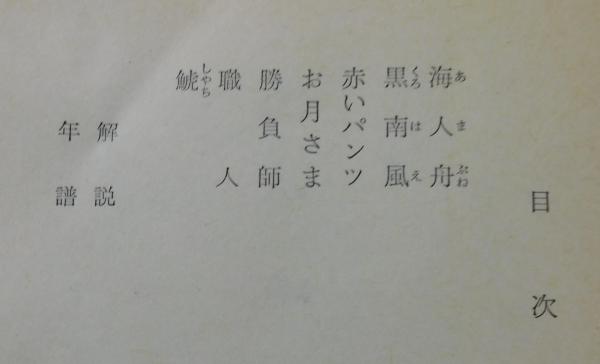 目次
海人舟
あまぶね
黒南風
くろはえ
赤いパンツ
お月さま
勝負師
職人
鯱
しゃち
解説
年譜